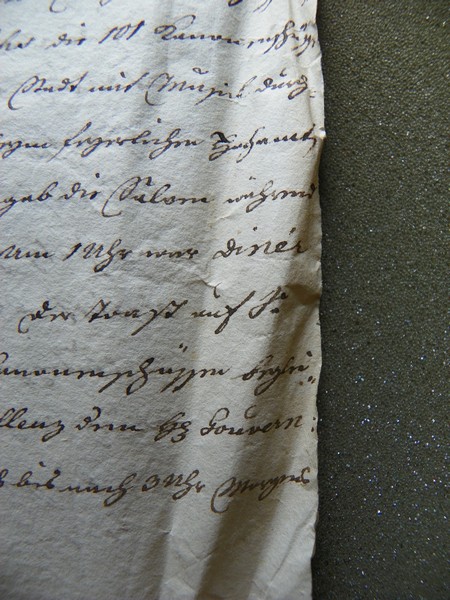 die 101 Kanonenschüße
Stadt mit Musick durch-
feyerlichen Hochamt
gab die Salven während
um 1 Uhr war diner
der Toast auf Sr
Kanonenschüssen beglei
llenz dem Gouvern:
bis nach 3 Uhr Morgens